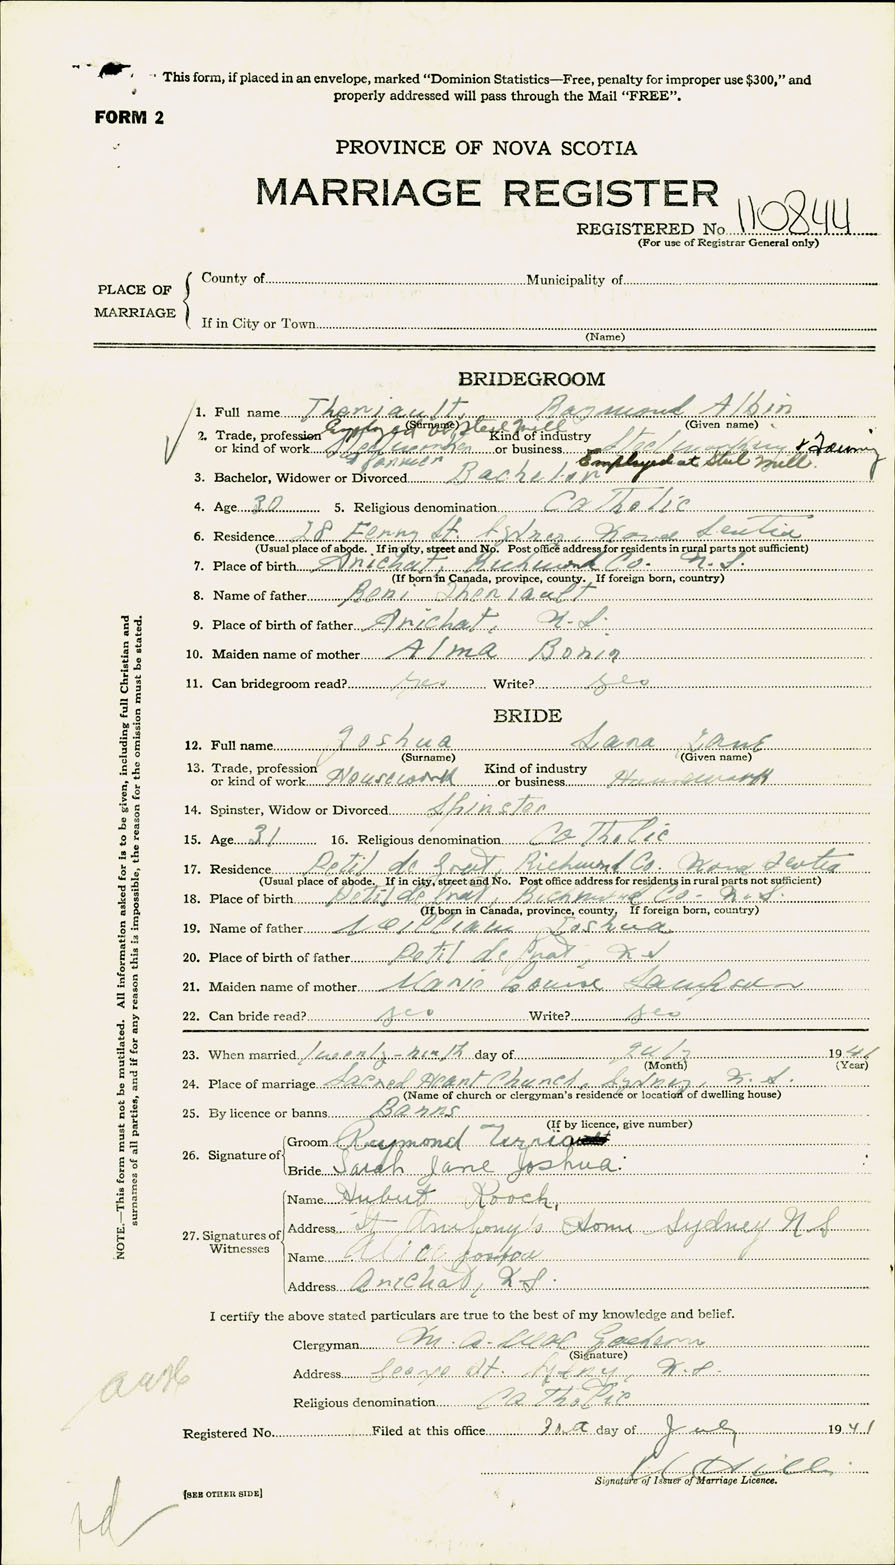 This form, if placed in an envelope, marked “Dominion Statistics—Free, penalty for improper use $300,” and
properly addressed will pass through the Mail “FREE”.
FORM 2
PROVINCE OF NOVA SCOTIA
MARRIAGE REGISTER
REGISTERED No. 110844
(For use of Registrar General only)
PLACE OF MARRIAGE
County of Municipality of
If in City or Town
(Name)
BRIDEGROOM
1. Full name Theriault, Raymond Albin
(Surname) (Given name)
Employed at Steel Mill
2. Trade, profession or kind of work Steelworker & farmer Kind of industry or business Steelworking & Farming
Employed at Steel Mill.
3. Bachelor, Widower or Divorced Bachelor
4. Age 30 5. Religious denomination Catholic
6. Residence 28 Ferry St. Sydney, Nova Scotia
(Usual place of abode. If in city, street and No. Post office address for residents in rural parts not sufficient)
7. Place of birth Arichat, Richmond Co. N.S.
(If born in Canada, province, county. If foreign born, country)
8. Name of father Theriault
9. Place of birth of father Arichat, N.S.
10. Maiden name of mother Alma Bonin
11. Can bridegroom read? yes Write? yes
BRIDE
12. Full name Joshua Sara Jane
(Surname) (Given name)
13. Trade, profession or kind of work Housework Kind of industry or business Housework
14. Spinster, Widow or Divorced Spinster
15. Age 31 16. Religious denomination Catholic
17. Residence Petit de Grat, Richmond Co. Nova Scotia
(Usual place of abode. If in city, street and No. Post office address for residents in rural parts not sufficient)
18. Place of birth Petit de Grat, Richmond Co. N.S.
(If born in Canada, province, county, If foreign born, country)
19. Name of father William Joshua
20. Place of birth of father Petit de Grat, N.S
21. Maiden name of mother Marie Louise Sampson
22. Can bride read? yes Write? yes
23. When married twenty-ninth day of July 1941
(Month) (Year)
24. Place of marriage Sacred Heart Church, Sydney, N.S.
(Name of church or clergyman's residence or location of dwelling house)
25. By licence or banns Banns
(If by licence, give number)
26. Signature of
Groom Raymond
Bride Sarah Jane Joshua
27. Signatures of Witnesses
Name Hubert
Address St Anthony's Home Sydney N S
Name Alice
Address Arichat, N.S.
I certify the above stated particulars are true to the best of my knowledge and belief.
Clergyman M. A.
(Signature)
Address George St. Sydney, N.S.
Religious denomination Catholic
Registered No. Filed at this office 30 day of July 1941
Signature of Issuer of Marriage Licence.
[SEE OTHER SIDE]
NOTE.—This form must not be mutilated. All information asked for is to be given, including full Christian and
surnames of all parties, and if for any reason this is impossible, the reason for the omission must be stated.